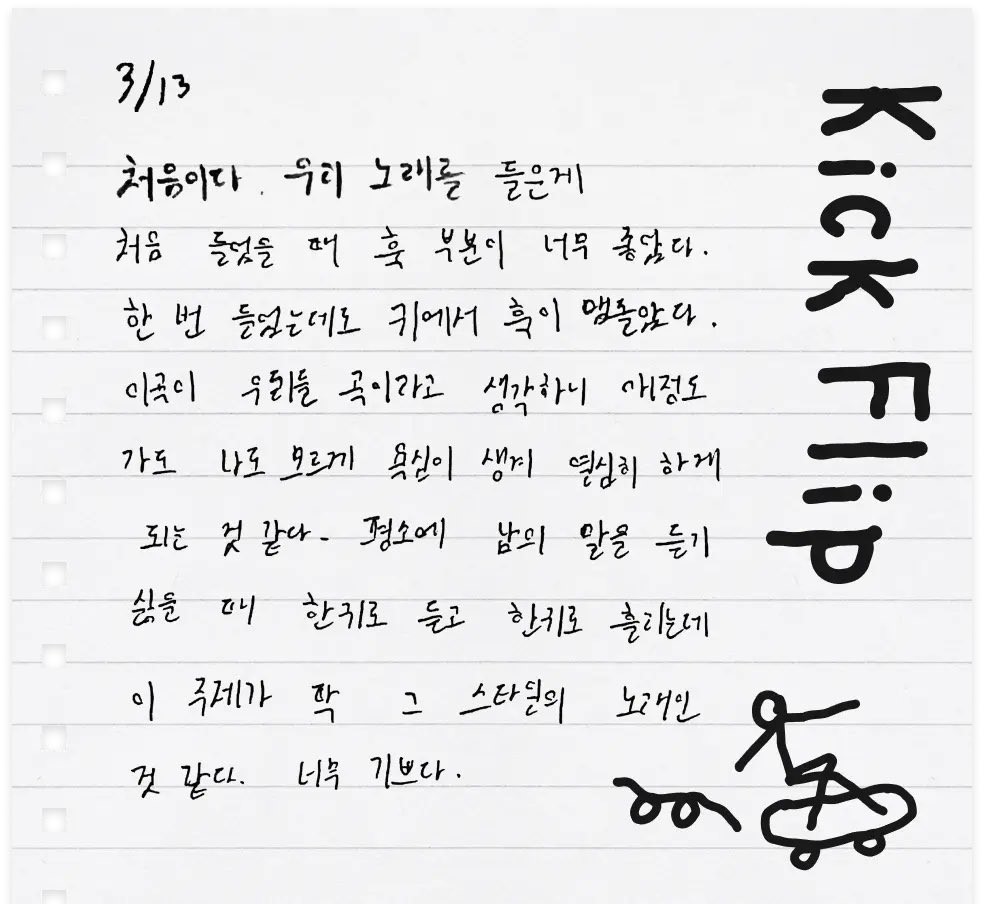 3/13
처음이다. 우리 노래를 들은게
처음 들었을 때 훅 부분이 너무 좋았다.
한 번 들었는데도 귀에서 훅이 맴돌았다.
이곡이 우리들 곡이라고 생각하니 애정도
가도 나도 모르게 욕심이 생겨 열심히 하게
되는 것 같다. 평소에 남의 말을 듣기
싫을 때 한귀로 듣고 한귀로 흘리는데
이 주제가 딱 그 스타일의 노래인
것 같다. 너무 기쁘다.
Kick Flip